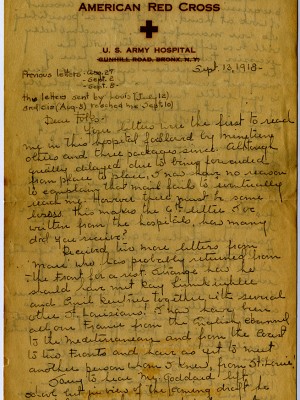 AMERICAN RED CROSS
U. S. ARMY HOSPITAL
GUNHILL ROAD, BRONX, N.Y.
Sept. 13, 1918-
Previous letters - Aug. 27
- Sept. 2
- Sept. 5-
the letters sent by Louis (June 12)
and (Aug 5) reached me Sept 10)
Dear Folks-
Your letters were the first to reach
me in this hospital followed by
others and three packages since. Although
greatly delayed due to being forwarded
from place to place, I now have no reason
to complain that mail fails to eventually
reach me. However there must be some
this makes the 4th letter I've
written from the hospitals, how many
did you receive?
Received two more letters from
who has probably returned from
the Front for a rest. Strange how he
should have met Ray
and together with several
other St. Louisians. I now have been
across France from the English Channel
to the Mediterranean and from the Coast
to two Fronts and have as yet to meet
another person whom I knew, from St. Louis.
Sorry to hear Mr. Goddard left
but in view of the coming draft he